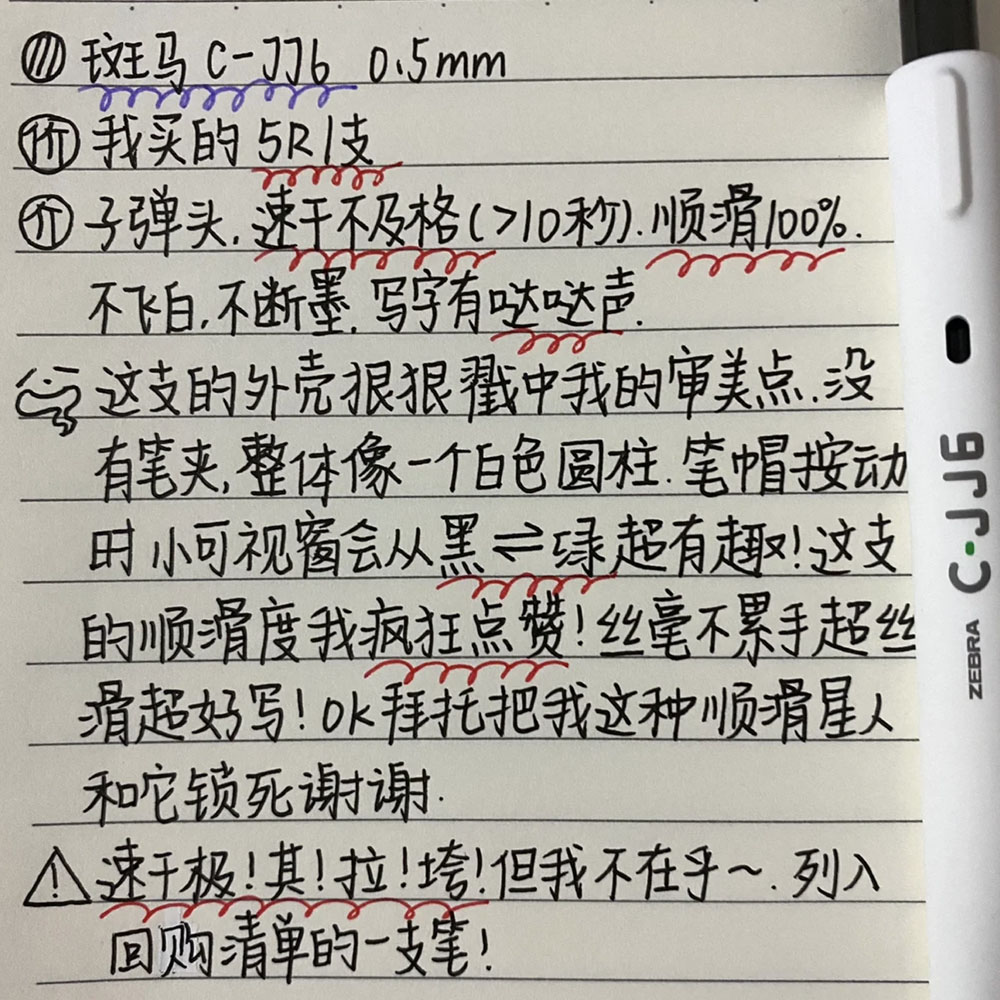 斑马 C-JJ6 0.5mm
价 我买的 5R1支
介 子弹头.速干不及格(>10秒).顺滑100%.
不飞白,不断墨.写字有哒哒声.
这支的外壳狠狠戳中我的审美点.没
有笔夹,整体像一个白色圆柱.笔帽按动
时小可视窗会从黑⇌绿超有趣!这支
的顺滑度我疯狂点赞!丝毫不累手超丝
滑超好写!OK拜托把我这种顺滑星人
和它锁死谢谢.
! 速干极!其!拉!垮!但我不在乎~.列入
回购清单的一支笔!
ZEBRA C·JJ6